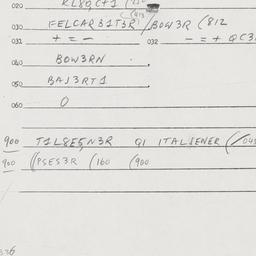 020
030 FELCARB1T3R/BOW3R (812
031 + = - 032 - = + QC3
040 BOW3RN .
050 BAJ3RT1 .
060 O
900 T1L8E5,N3R Q1 ITAL1ENER (/04
900 ((PSES3R (160 (900